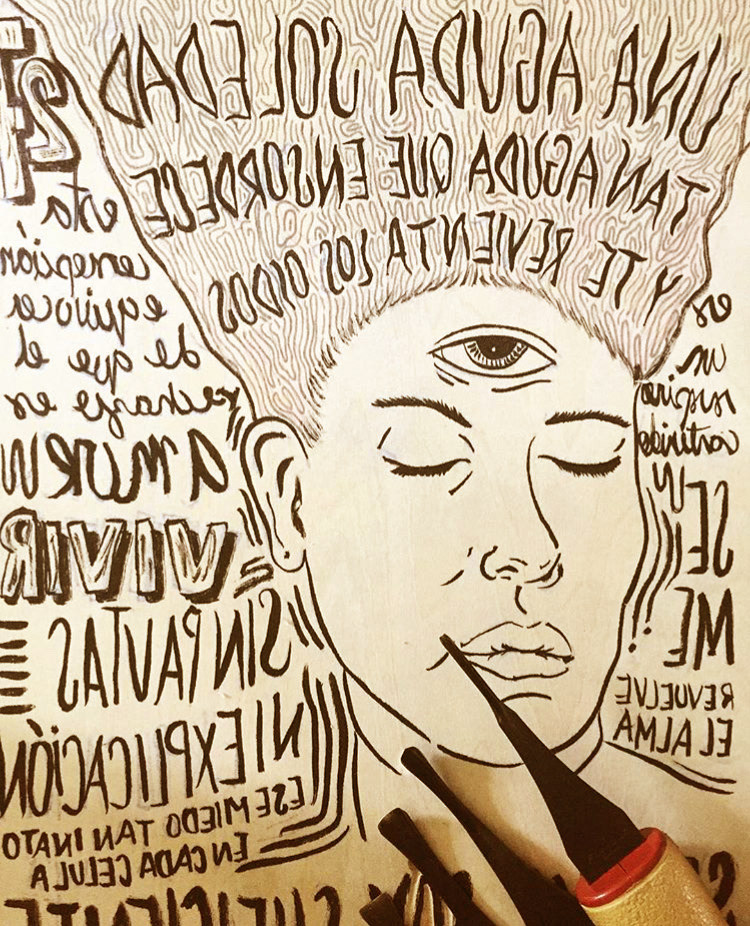 UNA AGUDA SOLEDAD
TAN AGUDA QUE ENSORDECE
Y TE REVIENTA LOS OIDOS
es
un
suspiro
contenido
SE
ME
REVUELVE
EL ALMA
esta
concepción
equivoca
de que el
rechazo es
amor
VIVIR
SIN PAUTAS
NI EXPLICACIÓN
ESE MIEDO TAN INATO
EN CADA CELULA
SUFICIENTE